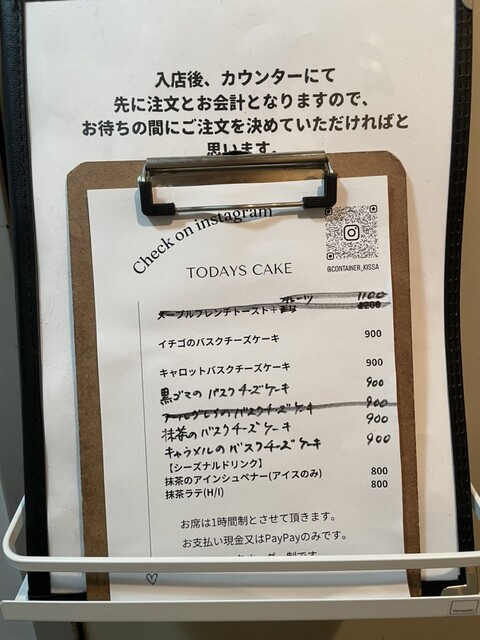 入店後、カウンターにて
先に注文とお会計となりますので、
お待ちの間にご注文を決めていただければと
思います。
Check on instagram
@CONTAINER_KISSA
TODAYS CAKE
メープルフレンチトースト+ フルーツ 1100
1200
イチゴのバスクチーズケーキ 900
キャロットバスクチーズケーキ 900
黒ゴマのバスクチーズケーキ 900
アールグレイのバスクチーズケーキ 900
抹茶のバスクチーズケーキ 900
キャラメルのバスクチーズケーキ 900
【シーズナルドリンク】
抹茶のアインシュペナー(アイスのみ) 800
抹茶ラテ(H/I) 800
お席は1時間制とさせて頂きます。
お支払い現金又はPayPayのみです。